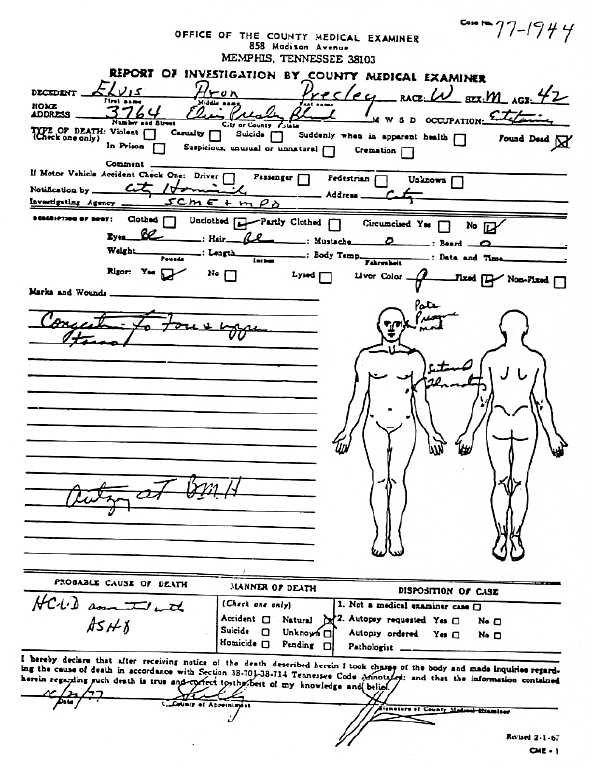 Case No. 77-1944
OFFICE OF THE COUNTY MEDICAL EXAMINER
858 Madison Avenue
MEMPHIS, TENNESSEE 38103
REPORT OF INVESTIGATION BY COUNTY MEDICAL EXAMINER
DECEDENT Elvis Aron Presley RACE: W SEX M AGE: 42
First name Middle name Last name
HOME ADDRESS 3764 Elvis Presley Blvd M W S D OCCUPATION:
Number and Street City or County State
TYPE OF DEATH: Violent Casualty Suicide Suddenly when in apparent health Found Dead
(Check one only) In Prison Suspicious, unusual or unnatural Cremation
Comment
If Motor Vehicle Accident Check One: Driver Passenger Pedestrian Unknown
Notification by City Homicide Address City
Investigating Agency SCME + MPD
DESCRIPTION OF BODY: Clothed Unclothed Partly Clothed Circumcised Yes No
Eyes Bl : Hair Bl : Mustache 0 : Beard 0
Weight : Length : Body Temp. : Date and Time
Pounds Inches Fahrenheit
Rigor: Yes No Lysed Livor Color Fixed Non-Fixed
Marks and Wounds
Congestion to face & upper
torso
Autopsy at BMH
PROBABLE CAUSE OF DEATH
HCVD assoc with
ASHD
MANNER OF DEATH
(Check one only)
Accident Natural
Suicide Unknown
Homicide Pending
DISPOSITION OF CASE
1. Not a medical examiner case
2. Autopsy requested Yes No
Autopsy ordered Yes No
Pathologist
I hereby declare that after receiving notice of the death described herein I took charge of the body and made inquiries regard-
ing the cause of death in accordance with Section 38-701-38-714 Tennessee Code Annotated; and that the information contained
herein regarding such death is true and correct to the best of my knowledge and belief.
Date County of Appointment Signature of County Medical Examiner
Revised 2-1-67
CME - 1